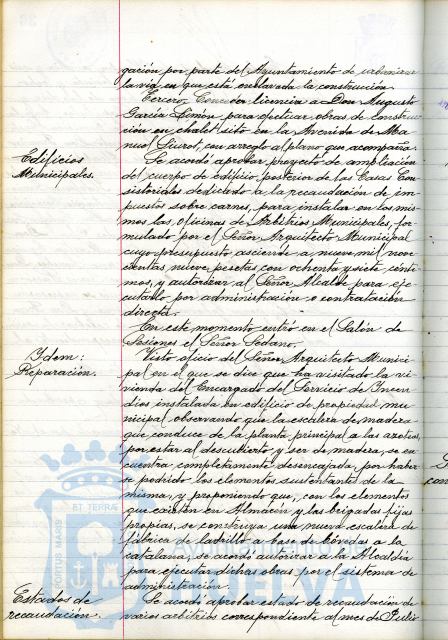 gación por parte del Ayuntamiento de urbanizar
la vía en que está enclavada la construcción.
Tercero: Conceder licencia a Don Augusto
García Simón, para efectuar obras de construc-
ción en chalet sito en la Avenida de Ma
nuel Siurot, con arreglo al plano que acompaña.
Edificios
Municipales.
Se acordó aprobar proyecto de ampliación
del cuerpo de edificio posterior de las Casas Con
sistoriales dedicado a la recaudación de im
puestos sobre carnes, para instalar en los mis
mos las Oficinas de Arbitrios Municipales, for
mulado por el Señor Arquitecto Municipal
cuyo presupuesto asciende a nueve mil nove
cientas nueve pesetas con ochenta y siete cénti
mos, y autorizar al Señor Alcalde para eje
cutarlo por administración o contratación
directa.
En este momento entró en el Salón de
Sesiones el Señor Sedano.
Idem:
Reparación.
Visto oficio del Señor Arquitecto Munici
pal en el que se dice que ha visitado la vi
vienda del Encargado del Servicio de Incen
dios instalada en edificio de propiedad mu
nicipal observando que la escalera de madera
que conduce de la planta principal a las azoteas,
por estar al descubierto y ser de madera, se en
cuentra completamente desencajada, por haber
se podrido los elementos sustentantes de la
misma, y proponiendo que, con los elementos
que existen en Almacén y las brigadas fijas
propias, se construya una nueva escalera de
fábrica de ladrillo a base de bóvedas a la
catalana, se acordó autorizar a la Alcaldía
para ejecutar dichas obras por el sistema de
administración.
Estados de
recaudación.
Se acordó aprobar estado de recaudación de
varios arbitrios correspondiente al mes de Julio
PORTUS MARIS
ET TERRAE
HUELVA